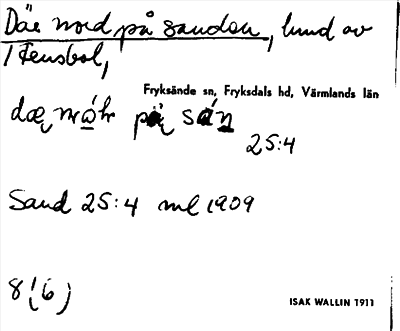 Där nord på sanden, lund av
1 Stensbol,
Fryksände sn, Fryksdals hd, Värmlands län
25:4
Sand 25:4 ml 1909
8 (6)
ISAK WALLIN 1911